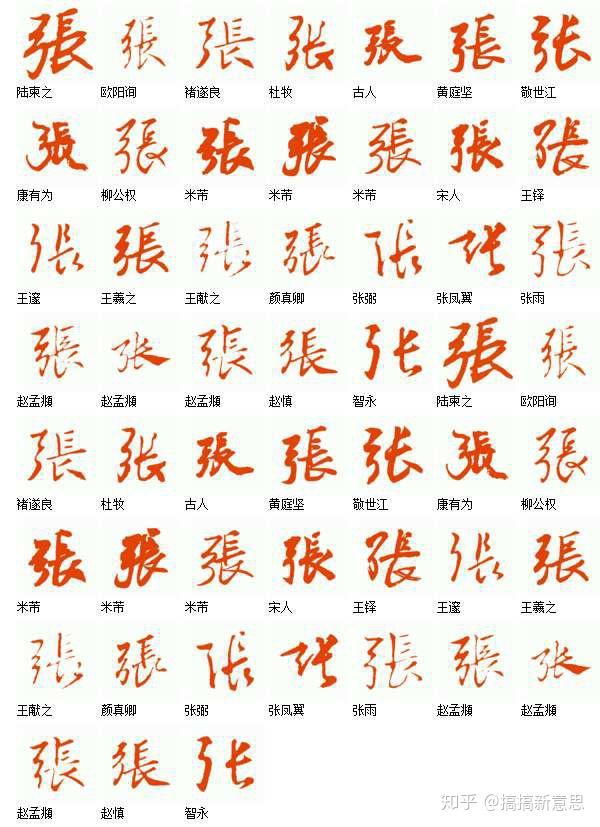 張 張 張 张 張 張 张
陆柬之 欧阳询 褚遂良 杜牧 古人 黄庭坚 敬世江
張 張 張 張 張 張 張
康有为 柳公权 米芾 米芾 米芾 宋人 王铎
張 張 張 張 張 张 張
王邃 王羲之 王献之 颜真卿 张弼 张凤翼 张雨
張 张 張 張 张 張 張
赵孟頫 赵孟頫 赵孟頫 赵慎 智永 陆柬之 欧阳询
張 张 張 張 张 張 張
褚遂良 杜牧 古人 黄庭坚 敬世江 康有为 柳公权
張 張 張 張 張 張 張
米芾 米芾 米芾 宋人 王铎 王邃 王羲之
張 張 張 张 張 張 张
王献之 颜真卿 张弼 张凤翼 张雨 赵孟頫 赵孟頫
張 張 张
赵孟頫 赵慎 智永
知乎 @搞搞新意思